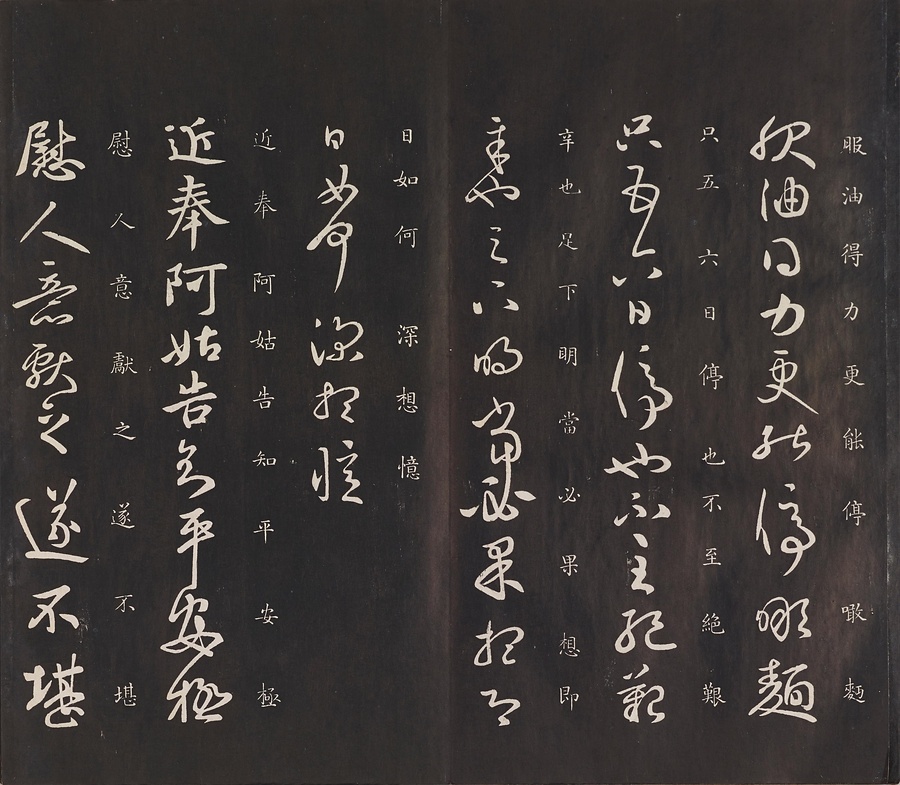 服油得力更能停噉麪
服油得力更能停噉麵
只五六日停也不至絕艱
只五六日停也不至絕艱
辛也足下明當必果想即
辛也足下明當必果想即
日如何深想憶
日如何深想憶
近奉阿姑告知平安極
近奉阿姑告知平安極
慰人意獻之遂不堪
慰人意獻之遂不堪